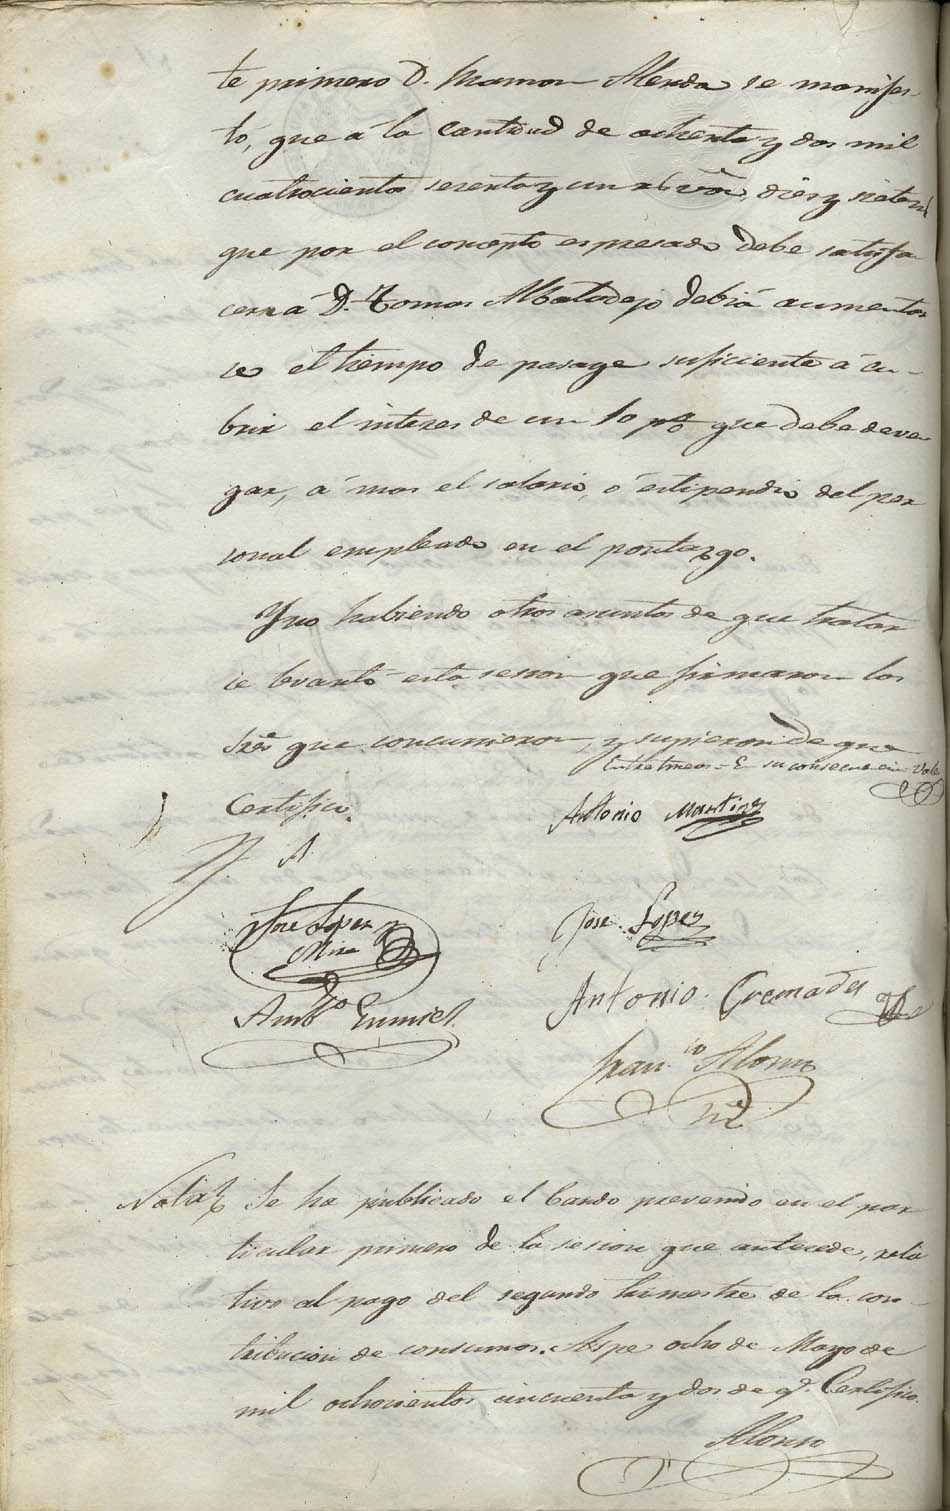 te primero D. Ramon Alenda se manifes-
tó, que á la cantidad de ochenta y dos mil
cuatrocientos sesenta y un rs von, diez y siete
que por el concepto espresado debe satisfa-
cerse á D. Tomas Albaladejo debiá aumentar
se el tiempo de pasage suficiente á cu-
brir el interes de un 10 p% que debe deven
gar, á mas el salario, ó estipendio del per
sonal empleado en el pontazgo.
Y no habiendo otros asuntos de que tratar
se levantó esta sesion que firmaron los
Sres que concurrieron, y supieron de que
Entre lineas = En su consecuencia = Vale
Certifico.
Antonio Martinez
A
Jose Lopez y
Mira
Jose Lopez
Antonio Cremades
Ambo Gumiel
Franco Alonso
Nota Se ha publicado el bando prevenido en el par
ticular primero de la sesion que antecede, rela
tivo al pago del segundo trimestre de la con-
tribucion de consumos. Aspe ocho de Mayo de
mil ochocientos cincuenta y dos de q. Certifico.
Alonso